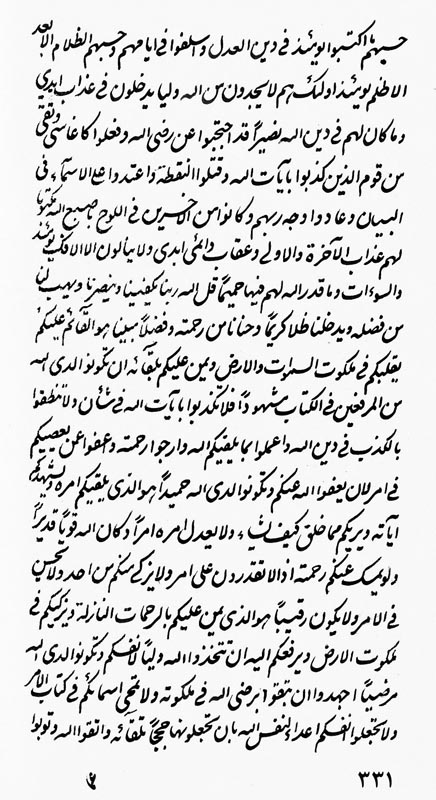 حسبهم اكتسبوا يومئذ فى دين العدل و اسلفوا فى ايامهم و حسبهم الظلام الا بعد
الا ظلم يومئذ اولئك هم لا يجدون من الله وليا يدخلون فى عذاب ابدى
و ما كان لهم فى دين الله نصيراً قد احتجبوا عن رضى الله و فعلوا كما عاشى و بقى
من قوم الذين كذبوا بايآت الله و قتلوا النقطة و اعتدوا على الاسمآء فى
البيان و عادوا وجه ربهم و كانوا من الاخسرين فى اللوح باصبع الله مكتوبا
لهم عذاب الآخرة و الاولى و عقاب دائمى ابدى و لا ينالون الا الافك يومئذ
و السوءات و ما قدر الله لهم فيها حميماً قل الله ربنا يكفينا و ينصرنا و يهب لنا
من فضله و يدخلنا ظلا كريماً و حنانا من رحمته و فضلاً مبينا هو القائم عليكم
يقلبكم فى ملكوت السموات و الارض و يمن عليكم بلقآئه ان تكونوا لدى الله
من المرفعين فى الكتاب مشهوداً فلا تكذبوا بايآت الله فى شأن و لا تنطقوا
بالكذب فى دين الله و اعملوا بما يلقيكم الله و ارجوا رحمته و عفوا عن يعصيكم
فى امر لان يعفوا الله عنكم و تكونوا لدى الله حميداً هو الذى يلقيكم امره و يشهدكم
اياته و يريكم مما خلق كيف يشاء و لا يعدل امره امراً و كان الله قوياً قديراً
و لو يمسك عنكم رحمته اذا لا تقدرون على امر و لا يزكى منكم من احد و لا يحسن
فى الامر و لا يكون رقيباً هو الذى يمن عليكم بالرحمات النازلة و يزكيكم فى
ملكوت الارض و يرفعكم اليه ان تتخذوا الله ولياً لانفسكم و تكونوا لدى الله
مرضياً اجهدوا ان تبقوا برضى الله فى ملكوته و لا تمحى اسمائكم فى كتاب الامر
و لا تجعلوا انفسكم اعداء لنفس الله بان تجعلونها حججاً بلقآئه و اتقوا الله و توبوا
٣٣١